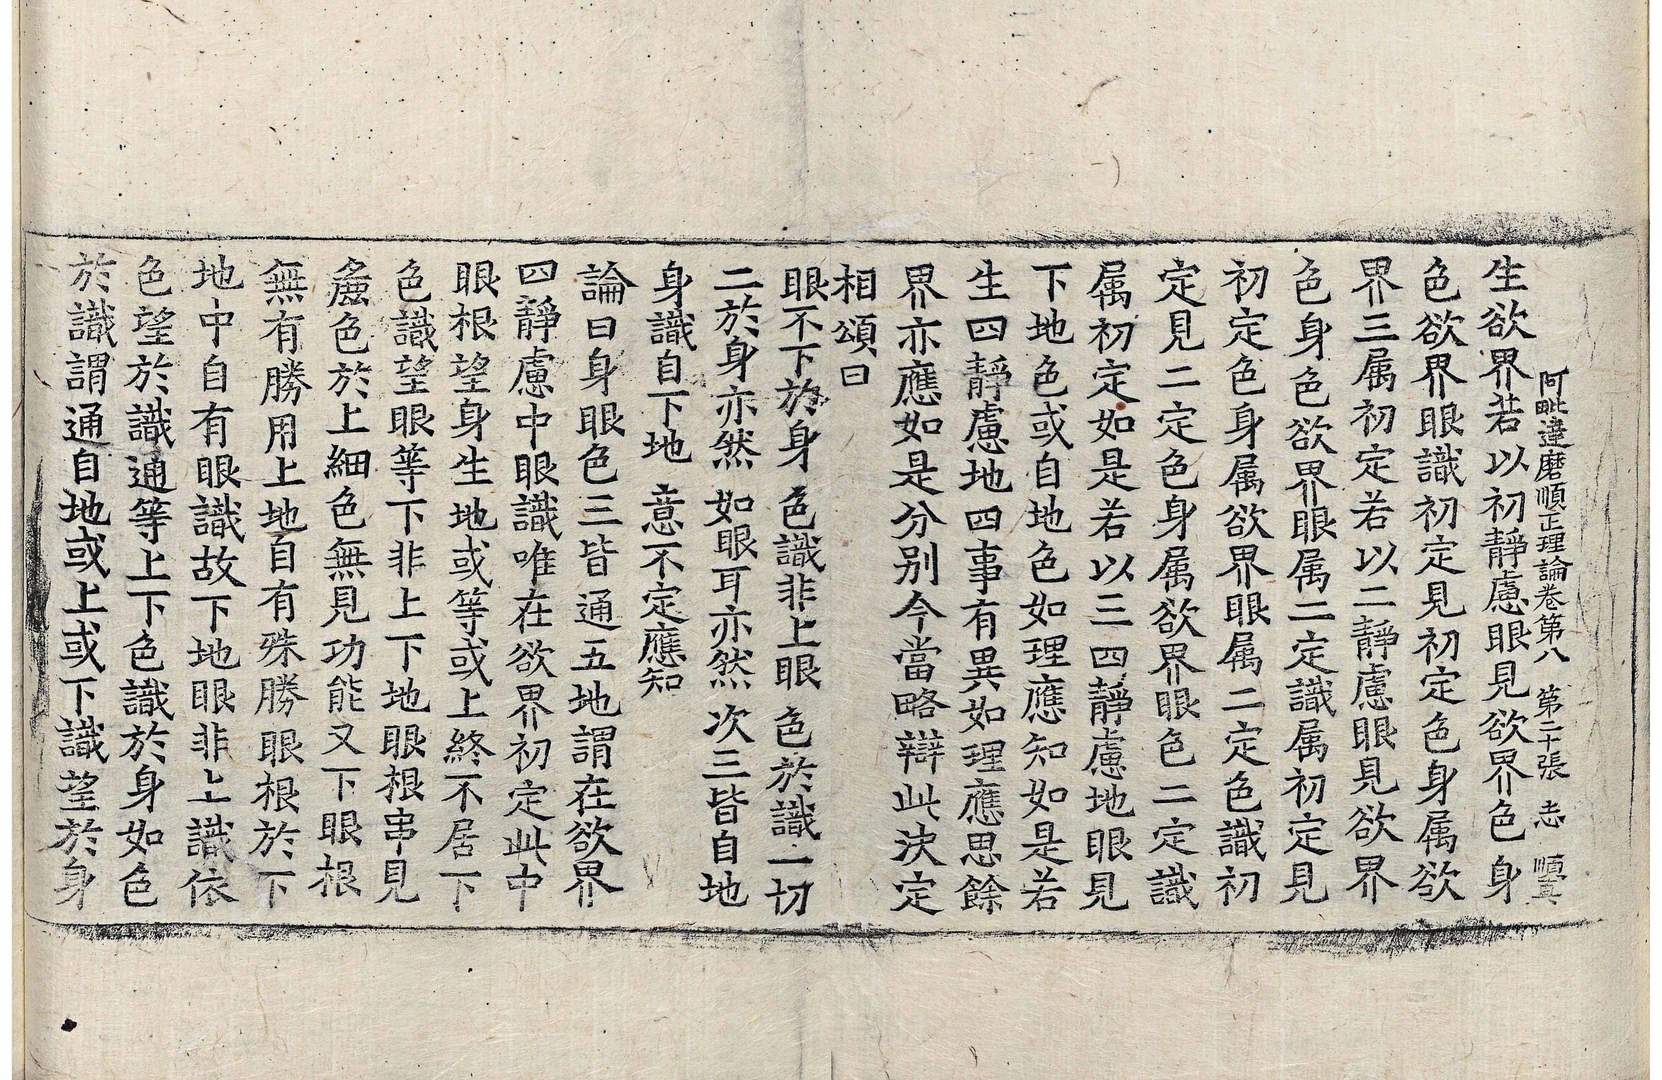 阿毗達磨順正理論卷第八 第二十張 志 順眞
生欲界若以初靜慮眼見欲界色身
色欲界眼識初定見初定色身属欲
界三属初定若以二靜慮眼見欲界
色身色欲界眼属二定識属初定見
初定色身属欲界眼属二定色識初
定見二定色身属欲界眼色二定識
属初定如是若以三四靜慮地眼見
下地色或自地色如理應知如是若
生四靜慮地四事有異如理應思餘
界亦應如是分別今當略辯此決定
相頌曰
眼不下於身 色識非上眼 色於識一切
二於身亦然 如眼耳亦然 次三皆自地
身識自下地 意不定應知
論曰身眼色三皆通五地謂在欲界
四靜慮中眼識唯在欲界初定此中
眼根望身生地或等或上終不居下
色識望眼等下非上下地眼根串見
麁色於上細色無見功能又下眼根
無有勝用上地自有殊勝眼根於下
地中自有眼識故下地眼非上識依
色望於識通等上下色識於身如色
於識謂通自地或上或下識望於身